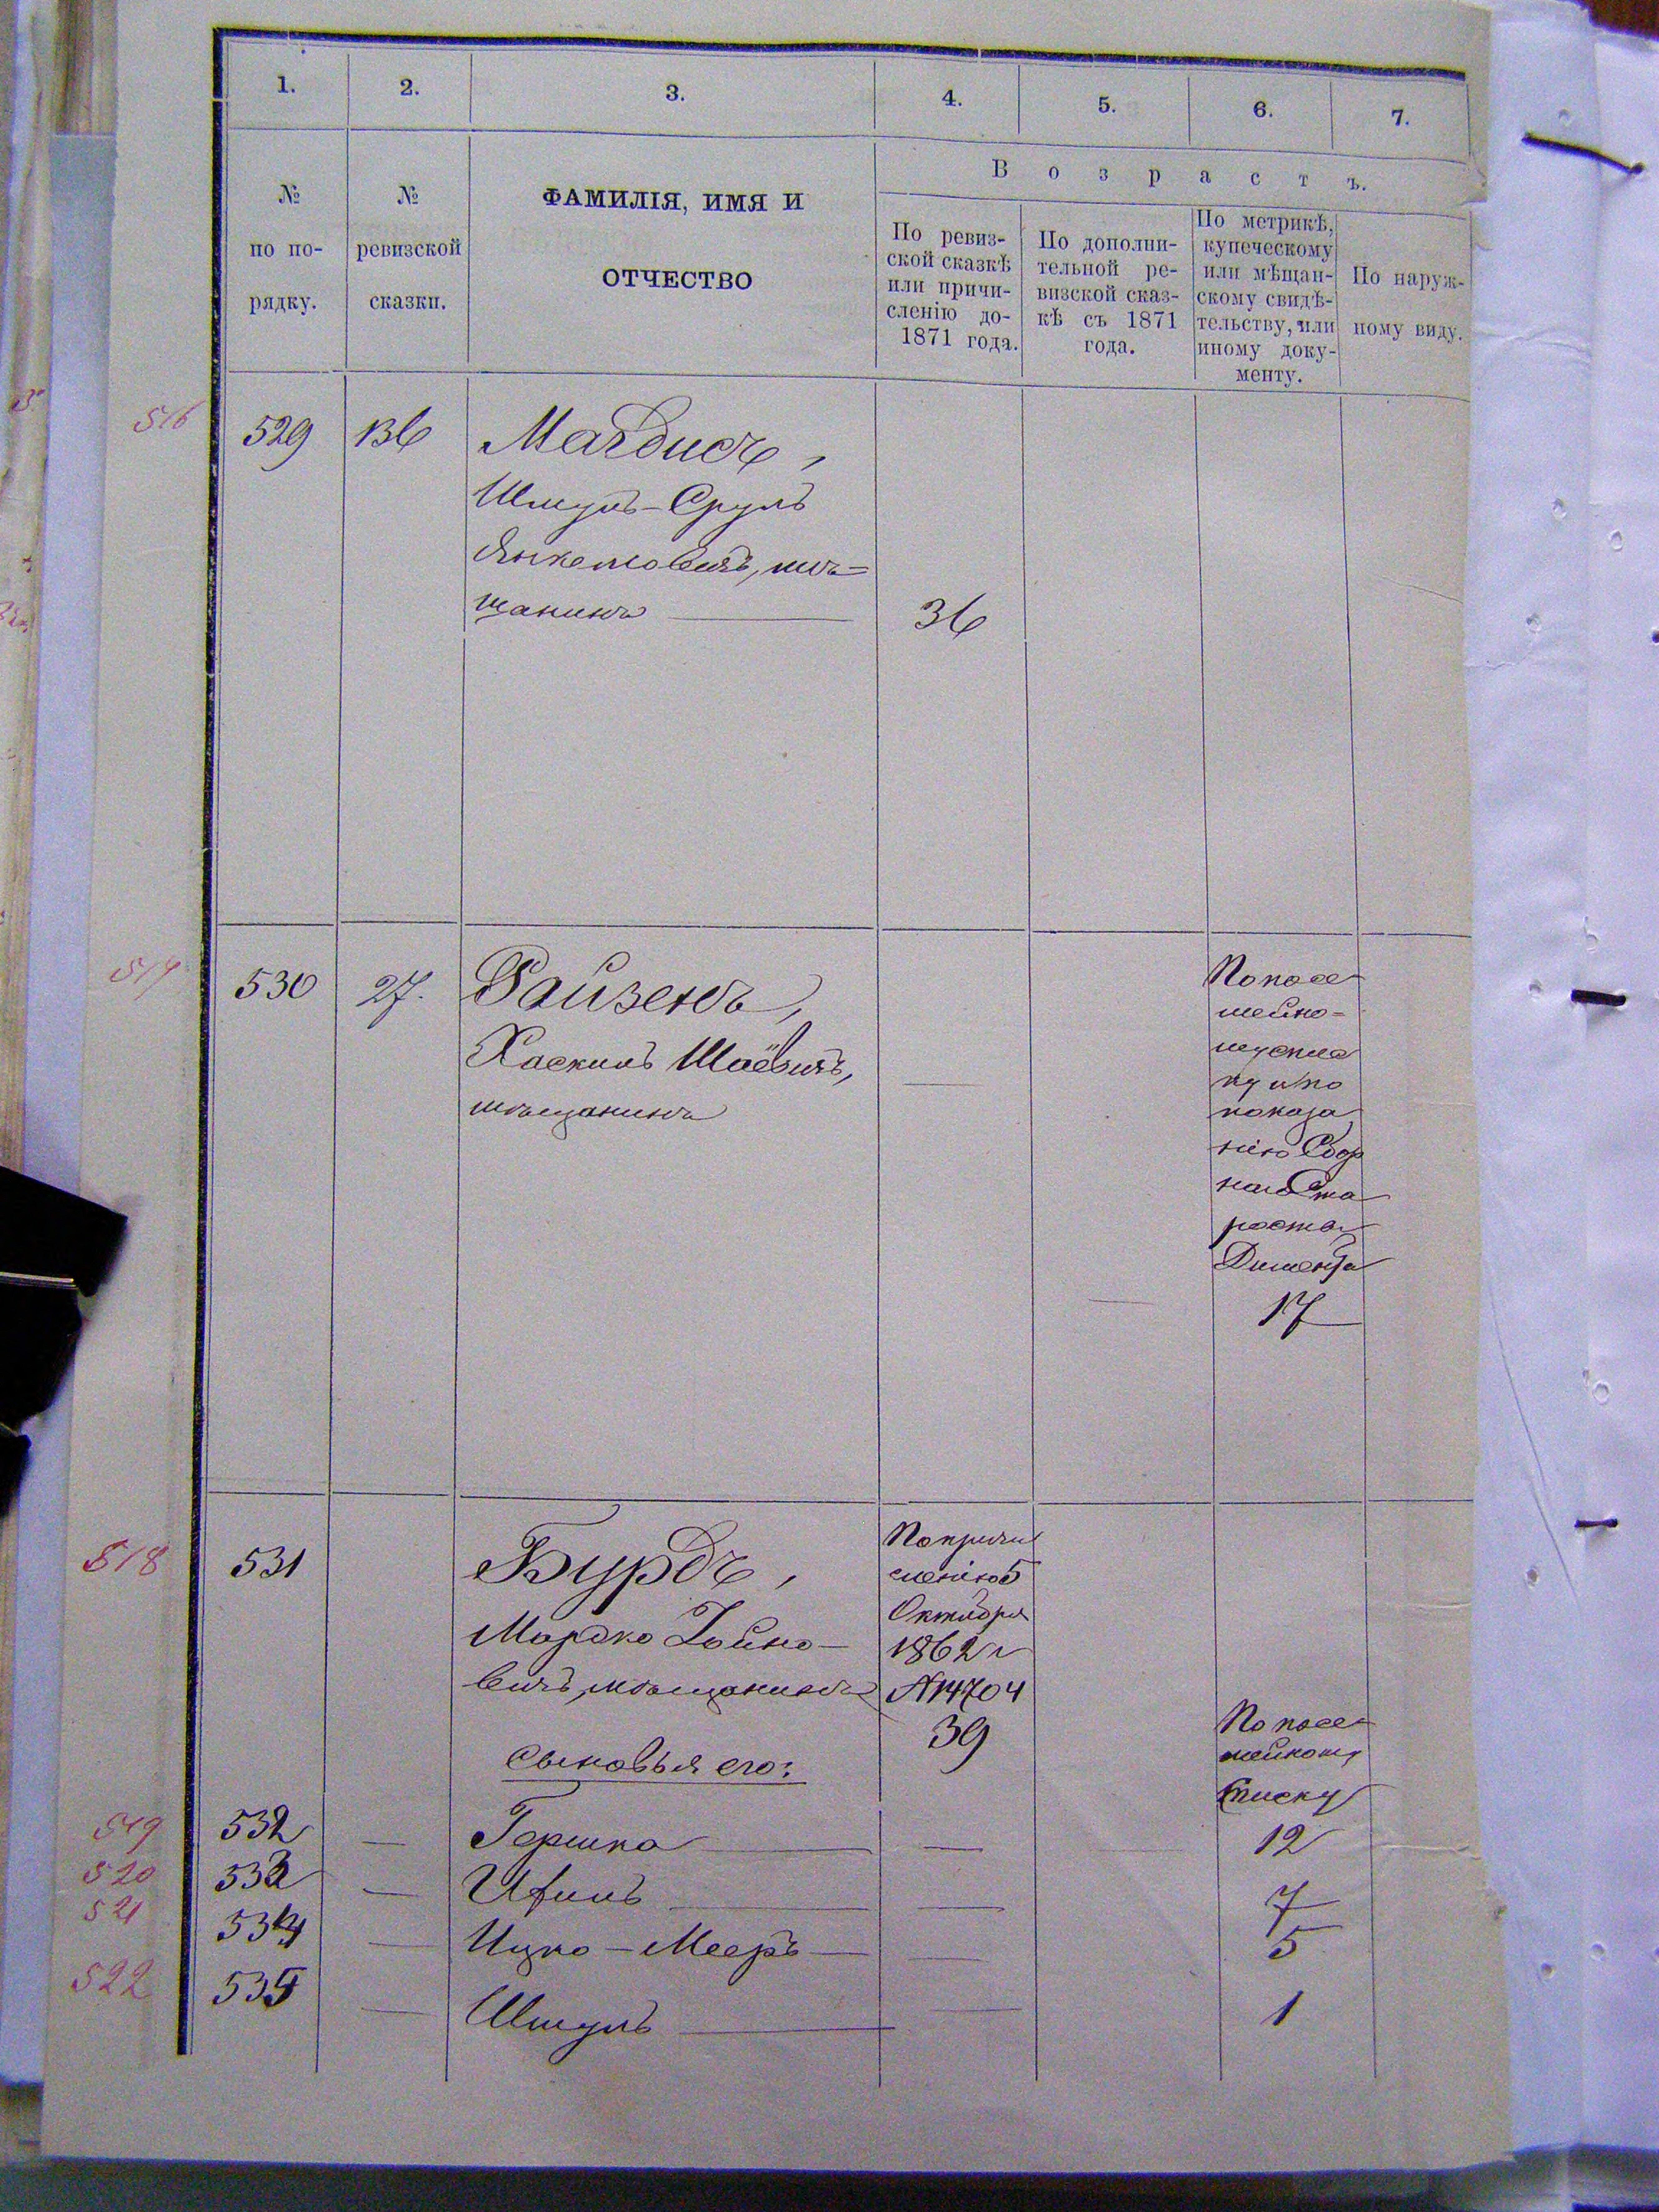 1. 2. 3. 4. 5. 6. 7.
№ по по-рядку.
№ ревизской сказки.
ФАМИЛІЯ, ИМЯ И
ОТЧЕСТВО
Возрастъ.
По ревиз-
ской сказкѣ
или причи-
сленію до-
1871 года.
По дополни-
тельной ре-
визской сказ-
кѣ съ 1871
года.
По метрикѣ,
купеческому
или мѣщан-
скому свидѣ-
тельству, или
иному доку-
менту.
По наруж-
ному виду.
516 529 136 Магдисъ,
Шмуль-Сруль
Янкеловичъ, мѣ=
щанинъ 36
517 530 27. Райзенъ,
Хаскиль Шаёвичъ,
мѣщанинъ
По посе-
мейно-
му спис
ку и по
показа
нію Сбор
наго Ста
росты
Димента
17
518 531 Бурдъ,
Мордко Гойно-
вичъ, мѣщанинъ
По причи
сленію 5
Октября
1862 г
№ 14704
39
Сыновья его:
По посе-
мейному
списку
519 532 — Гершко — 12
520 533 — — 7
521 534 — Ицко-Мееръ — 5
522 535 — Шмуль — 1